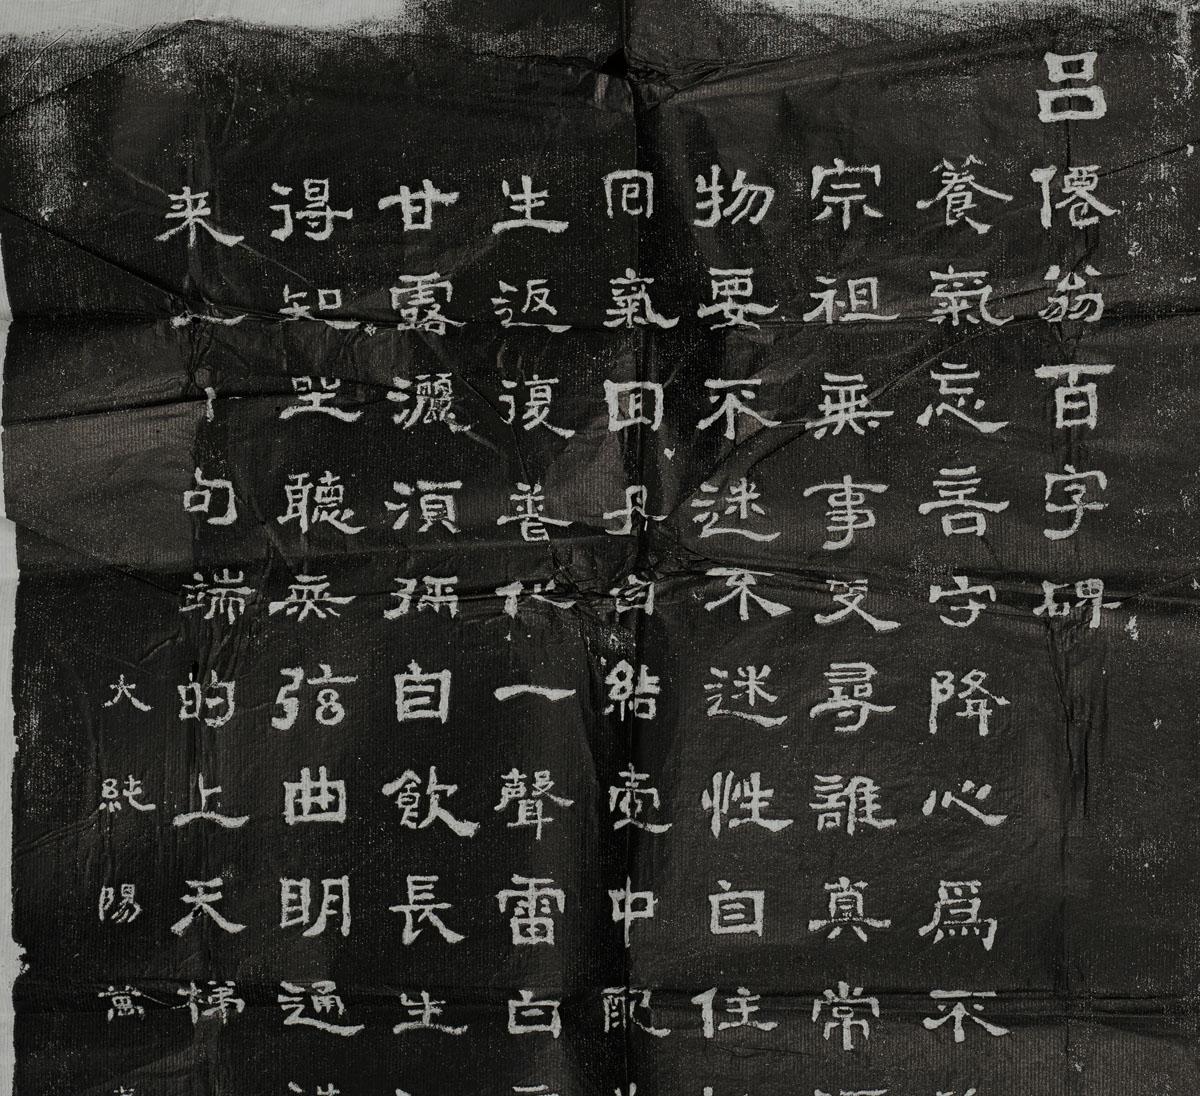 呂僊翁百字碑
養氣忘言守降心爲不
宗祖無事更尋誰真常
物要不迷不迷性自住
囘氣囬丹自結壺中配
生返復普化一聲雷白
甘露灑須彌自飲長生
得知坐聽無弦曲明通
来二十句端的上天梯
大純陽萬